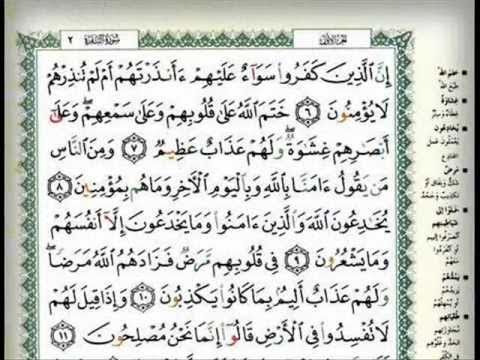 سورة البقرة ٢
الجزء الأول
إِنَّ ٱلَّذِينَ كَفَرُوا۟ سَوَآءٌ عَلَيْهِمْ ءَأَنذَرْتَهُمْ أَمْ لَمْ تُنذِرْهُمْ
لَا يُؤْمِنُونَ ٦ خَتَمَ ٱللَّهُ عَلَىٰ قُلُوبِهِمْ وَعَلَىٰ سَمْعِهِمْ ۖ وَعَلَىٰٓ
أَبْصَٰرِهِمْ غِشَٰوَةٌ ۖ وَلَهُمْ عَذَابٌ عَظِيمٌ ٧ وَمِنَ ٱلنَّاسِ
مَن يَقُولُ ءَامَنَّا بِٱللَّهِ وَبِٱلْيَوْمِ ٱلْءَاخِرِ وَمَا هُم بِمُؤْمِنِينَ ٨
يُخَٰدِعُونَ ٱللَّهَ وَٱلَّذِينَ ءَامَنُوا۟ وَمَا يَخْدَعُونَ إِلَّآ أَنفُسَهُمْ
وَمَا يَشْعُرُونَ ٩ فِى قُلُوبِهِم مَّرَضٌ فَزَادَهُمُ ٱللَّهُ مَرَضًا ۖ
وَلَهُمْ عَذَابٌ أَلِيمٌۢ بِمَا كَانُوا۟ يَكْذِبُونَ ١٠ وَإِذَا قِيلَ لَهُمْ
لَا تُفْسِدُوا۟ فِى ٱلْأَرْضِ قَالُوٓا۟ إِنَّمَا نَحْنُ مُصْلِحُونَ ١١
ختم الله
طبع الله
غشاوة
يخادعون
مرض
خلوا إلى
شياطينهم
يمدهم
طغيانهم